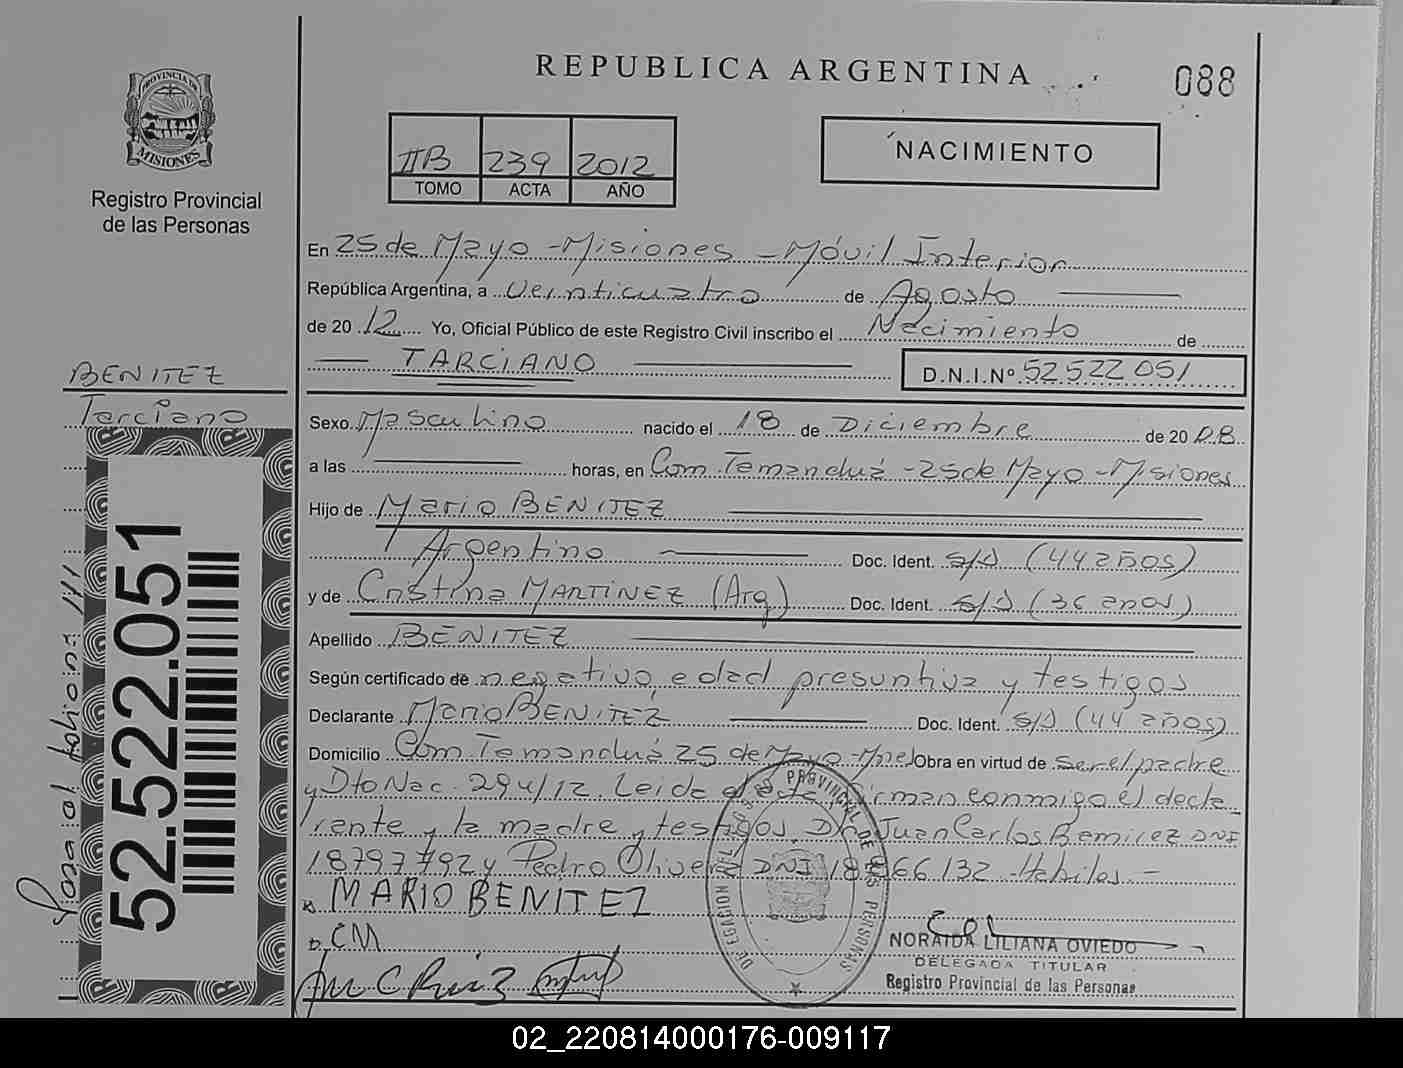 REPUBLICA ARGENTINA
088
PROVINCIA DE
MISIONES
Registro Provincial
de las Personas
IIB 239 2012
TOMO ACTA AÑO
NACIMIENTO
En 25 de Mayo - Misiones - Móvil Interior
República Argentina, a veinticuatro de Agosto
de 2012 Yo, Oficial Público de este Registro Civil inscribo el Nacimiento de
TARCIANO
D.N.I.Nº 52 522 051
BENITEZ
Tarciano
Sexo Masculino nacido el 18 de Diciembre de 2008
a las horas, en Com. Tamanduá - 25 de Mayo - Misiones
Hijo de Mario BENITEZ
Argentino Doc. Ident. S/D (44 años)
y de Cristina MARTINEZ (Arg.) Doc. Ident. S/D (36 años)
Apellido BENITEZ
Según certificado de negativo, edad presuntiva y testigos
Declarante Mario BENITEZ Doc. Ident. S/D (44 años)
Domicilio Com. Tamanduá 25 de Mayo - Mnes Obra en virtud de ser el padre
y Dto Nac. 294/12. Leida el acta firman conmigo el decla
rante y la madre y testigos Dn. Juan Carlos DNI
18797792 y Pedro Olivera DNI 132 - Habiles -
MARIO BENITEZ
CM
DELEGACION PROVINCIAL DE LAS PERSONAS
NORAIDA LILIANA OVIEDO
DELEGADA TITULAR
Registro Provincial de las Personas
52.522.051
02_220814000176-009117